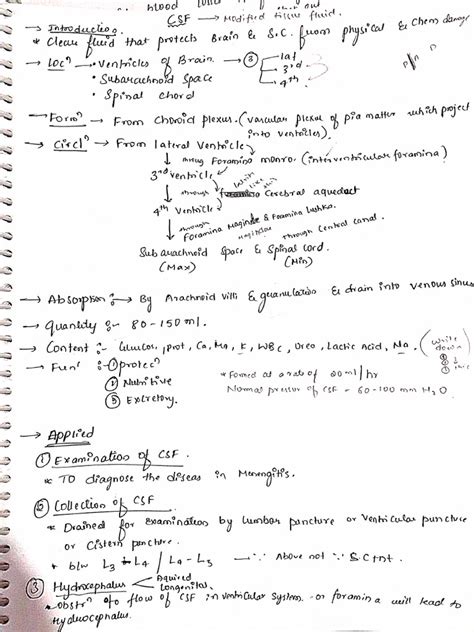 blood
CSF → Modified tissue fluid.
→ Introduction.
* Clear fluid that protects Brain & S.C. from physical & Chem damage
→ Locⁿ → • Ventricles of Brain. → ③ lat
• Subarachnoid Space 3rd
• Spinal chord 4th
→ Formⁿ → From Choroid plexus. (vascular plexus of pia matter which project
into ventricles).
→ Circlⁿ → From lateral Ventricle
↓ through Foramina monro. (interventricular foramina)
3rd ventricle
↓ through Cerebral aqueduct
write like this
4th Ventricle
↓ through Foramina Magindie & Foamina lushka.
through Central canal.
Subarachnoid Space & Spinal cord.
(Max) (Min)
→ Absorption :→ By Arachnoid villi & granulation & drain into venous sinus
→ Quantity :- 80-150 ml.
→ Content :- Glucose, prot, Ca, Mg, K, WBC, Urea, Lactic Acid, Na. (write down
→ Funⁿ :- ① protecⁿ
② Nutritive
③ Excretory.
* Formed at a rate of 20 ml/hr
Normal pressur of CSF - 60-100 mm H2O
→ Applied
① Examination of CSF.
* TO diagnose the diseas in Meningitis.
② Collection of CSF
* Drained for examination by lumbar puncture or Ventricular puncture
or Cistern puncture.
* b/w L3 - L4 / L4 - L5 → ∵ Above not
③ Hydrocephalus Aquired
Longenital.
* obstrⁿ to flow of CSF in ventricular system. or foramina will lead to
Hydrocephalus.